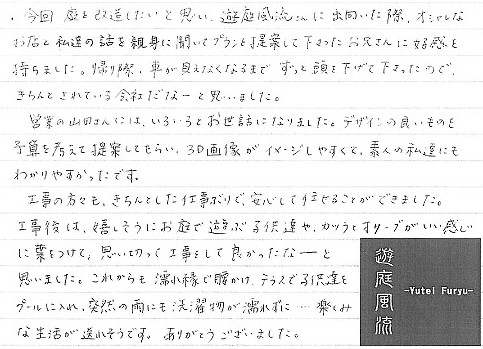 ・今回 庭を改造したいと思い、遊庭風流さんに出向いた際、オシャレな
お店と私達の話を親身に聞いてプランを提案して下さったお兄さんに好感を
持ちました。帰り際、車が見えなくなるまで ずっと頭を下げて下さったので、
きちんとされている会社だなーと思いました。
営業の山田さんには、いろいろとお世話になりました。デザインの良いものを
予算を考えて提案してもらい、3D画像がイメージしやすくて、素人の私達にも
わかりやすかったです。
工事の方々も、きちんとした仕事ぶりで、安心して任せることができました。
工事後は、嬉しそうにお庭で遊ぶ子供達や、カツラとオリーブがいい感じ
に葉をつけて、思い切って工事をして良かったなーと
思いました。これからも濡れ縁で腰かけ、テラスで子供達を
プールに入れ、突然の雨にも洗濯物が濡れずに… 楽しみ
な生活が送れそうです。ありがとうございました。
遊庭風流
-Yutei Furyu-